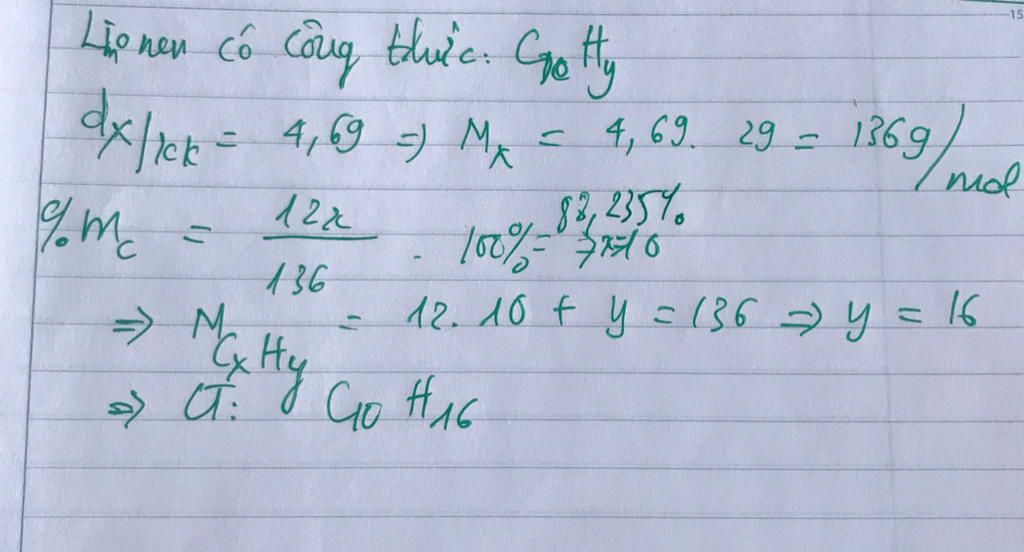 15
Limonen có công thức: C10 Hy
dX/kk = 4,69 => MX = 4,69. 29 = 136g/mol
%mC = 12x/136 . 100% = 88,235% => x=10
=> MCxHy = 12. 10 + y = 136 => y = 16
=> CT: C10 H16